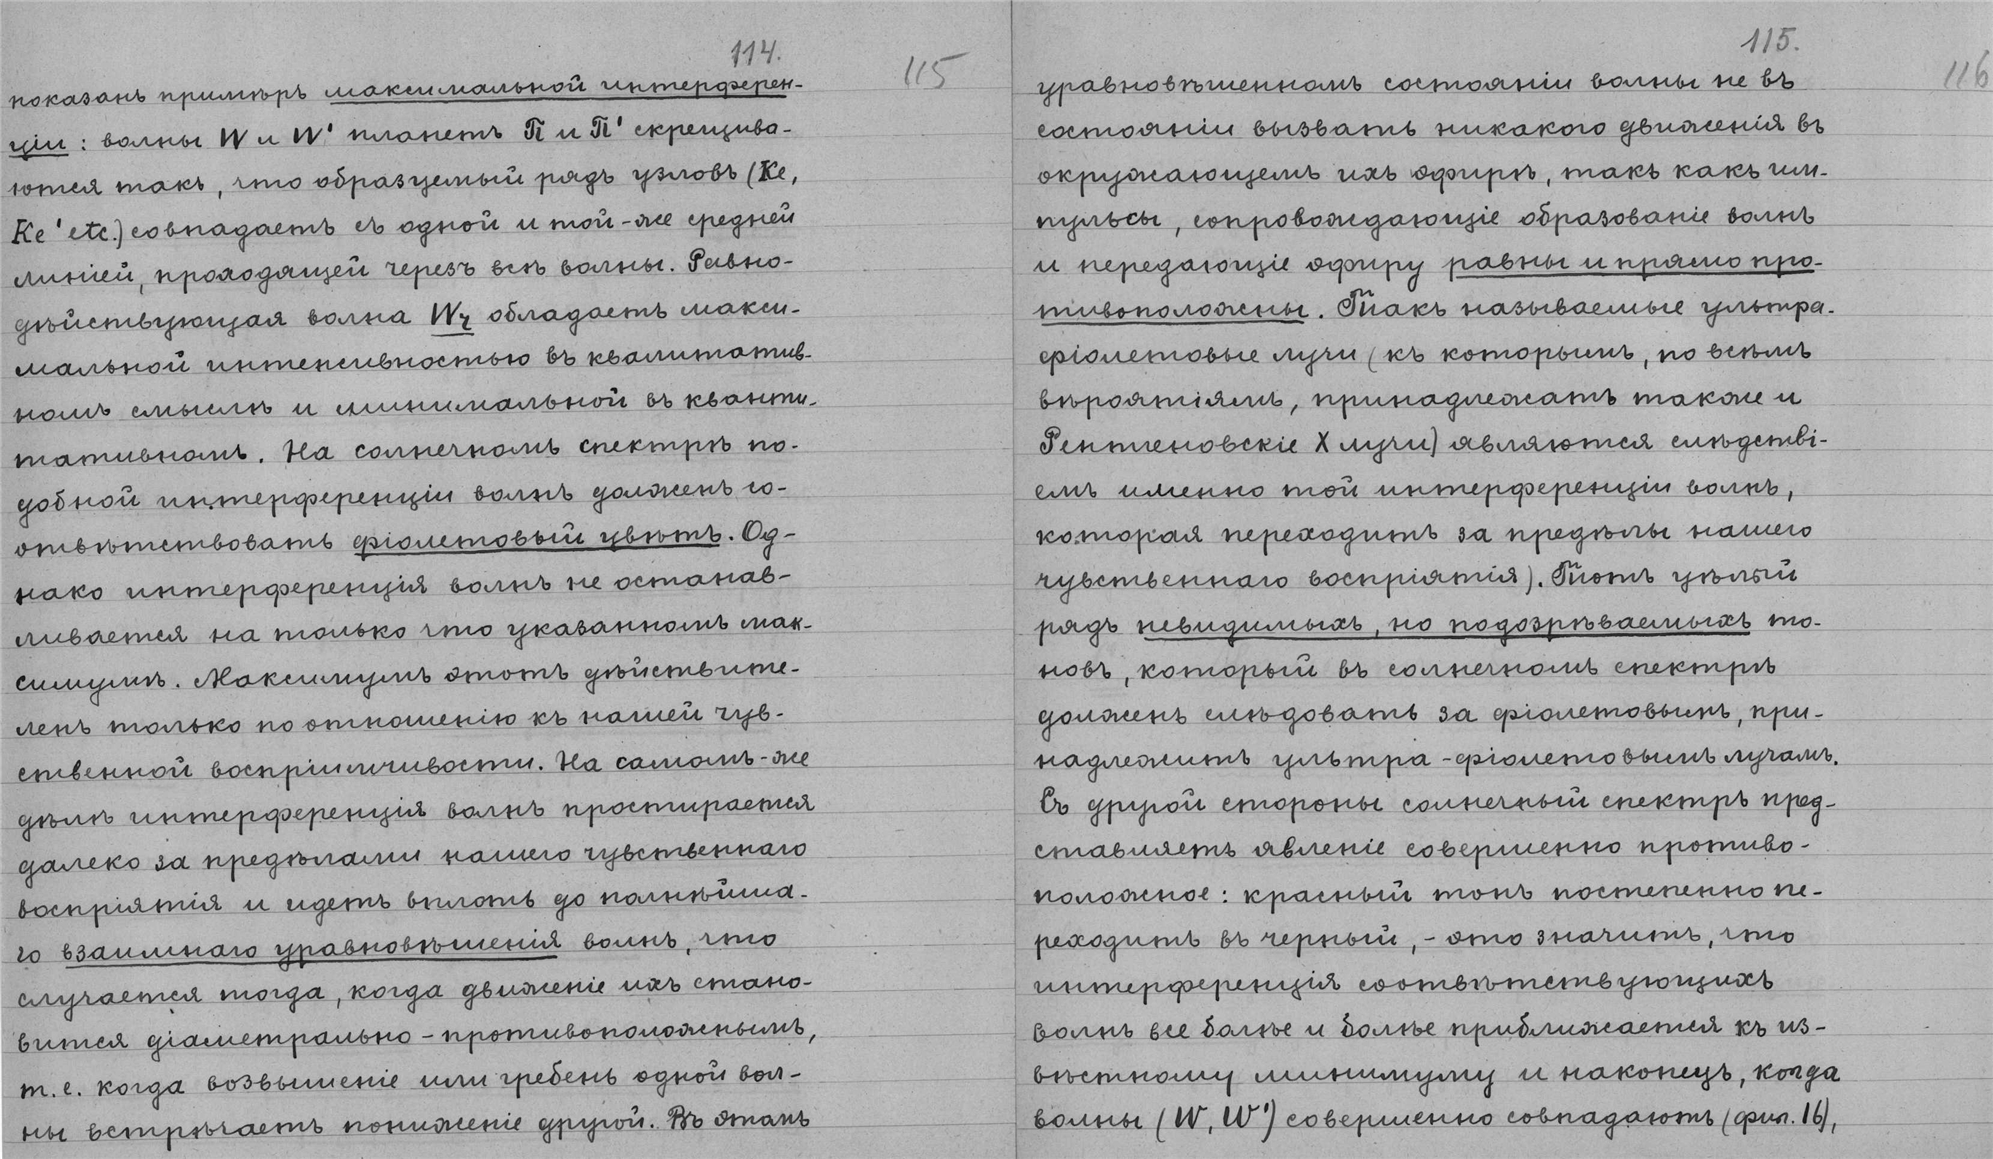 114.
115
показанъ примѣръ максимальной интерферен-
ціи: волны W и W' планетъ П и П' скрещива-
ются такъ, что образуемый рядъ узловъ (Ке,
Ке' etc.) совпадаетъ съ одной и той-же средней
линіей, проходящей черезъ всѣ волны. Равно-
дѣйствующая волна Wr обладаетъ макси-
мальной интенсивностью въ квалитатив-
номъ смыслѣ и минимальной въ кванти-
тативномъ. На солнечномъ спектрѣ по-
добной интерференціи волнъ долженъ со-
отвѣтствовать фіолетовый цвѣтъ. Од-
нако интерференція волнъ не останав-
ливается на только что указанномъ мак-
симумѣ. Максимумъ этотъ дѣйствите-
ленъ только по отношенію къ нашей чув-
ственной воспріимчивости. На самомъ-же
дѣлѣ интерференція волнъ простирается
далеко за предѣлами нашего чувственнаго
воспріятія и идетъ вплоть до полнѣйша-
го взаимнаго уравновѣшенія волнъ, что
случается тогда, когда движеніе ихъ стано-
вится діаметрально-противоположнымъ,
т.е. когда возвышеніе или гребень одной вол-
ны встрѣчаетъ пониженіе другой. Въ этомъ
115.
116
уравновѣшенномъ состояніи волны не въ
состояніи вызвать никакого движенія въ
окружающемъ ихъ эфирѣ, такъ какъ им-
пульсы, сопровождающіе образованіе волнъ
и передающіе эфиру равны и прямо про-
тивоположны. Такъ называемые ультра-
фіолетовые лучи (къ которымъ, по всѣмъ
вѣроятіямъ, принадлежатъ также и
Рентгеновскіе Х лучи) являются слѣдстві-
емъ именно той интерференціи волнъ,
которая переходитъ за предѣлы нашего
чувственнаго воспріятія). Тотъ цѣлый
рядъ невидимыхъ, но подозрѣваемыхъ то-
новъ, который въ солнечномъ спектрѣ
долженъ слѣдовать за фіолетовымъ, при-
надлежитъ ультра-фіолетовымъ лучамъ.
Съ другой стороны солнечный спектръ пред-
ставляетъ явленіе совершенно противо-
положное: красный тонъ постепенно пе-
реходитъ въ черный, - это значитъ, что
интерференція соотвѣтствующихъ
волнъ все болѣе и болѣе приближается къ из-
вѣстному минимуму и наконецъ, когда
волны (W, W') совершенно совпадаютъ (фиг. 16),